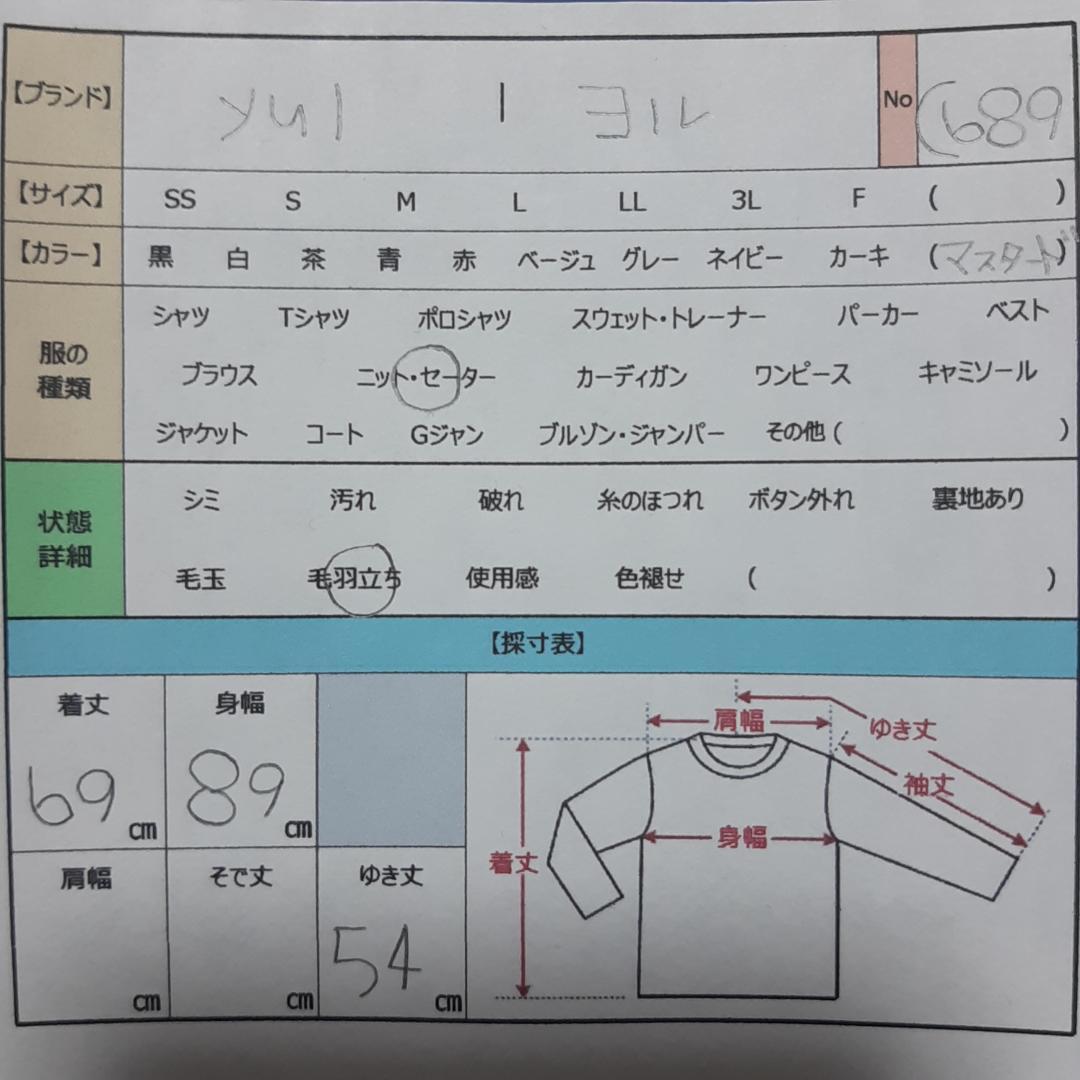 【ブランド】 No
【サイズ】 SS S M L LL 3L F ( )
【カラー】 黒 白 茶 青 赤 ベージュ グレー ネイビー カーキ (マスタード)
服の種類
シャツ Tシャツ ポロシャツ スウェット・トレーナー パーカー ベスト
ブラウス ニット・セーター カーディガン ワンピース キャミソール
ジャケット コート Gジャン ブルゾン・ジャンパー その他 ( )
状態詳細
シミ 汚れ 破れ 糸のほつれ ボタン外れ 裏地あり
毛玉 毛羽立ち 使用感 色褪せ ( )
【採寸表】
着丈 身幅
69 cm 89 cm
肩幅 そで丈 ゆき丈
cm cm 54 cm
肩幅
ゆき丈
袖丈
身幅
着丈